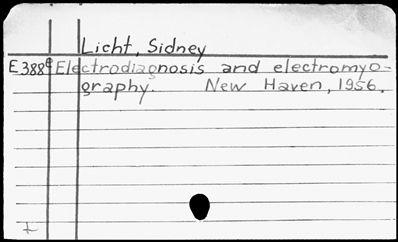 Licht, Sidney
E388e Electrodiagnosis and electromyo-
graphy. New Haven, 1956.